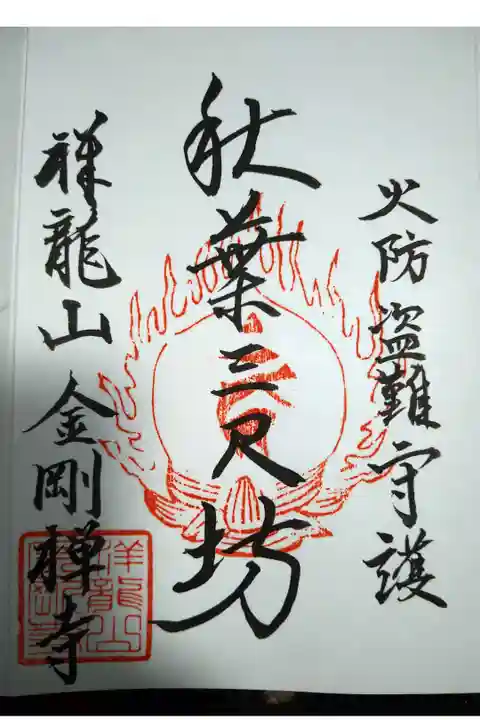 火防盗難守護
秋葉三尺坊
祥龍山 金剛禅寺